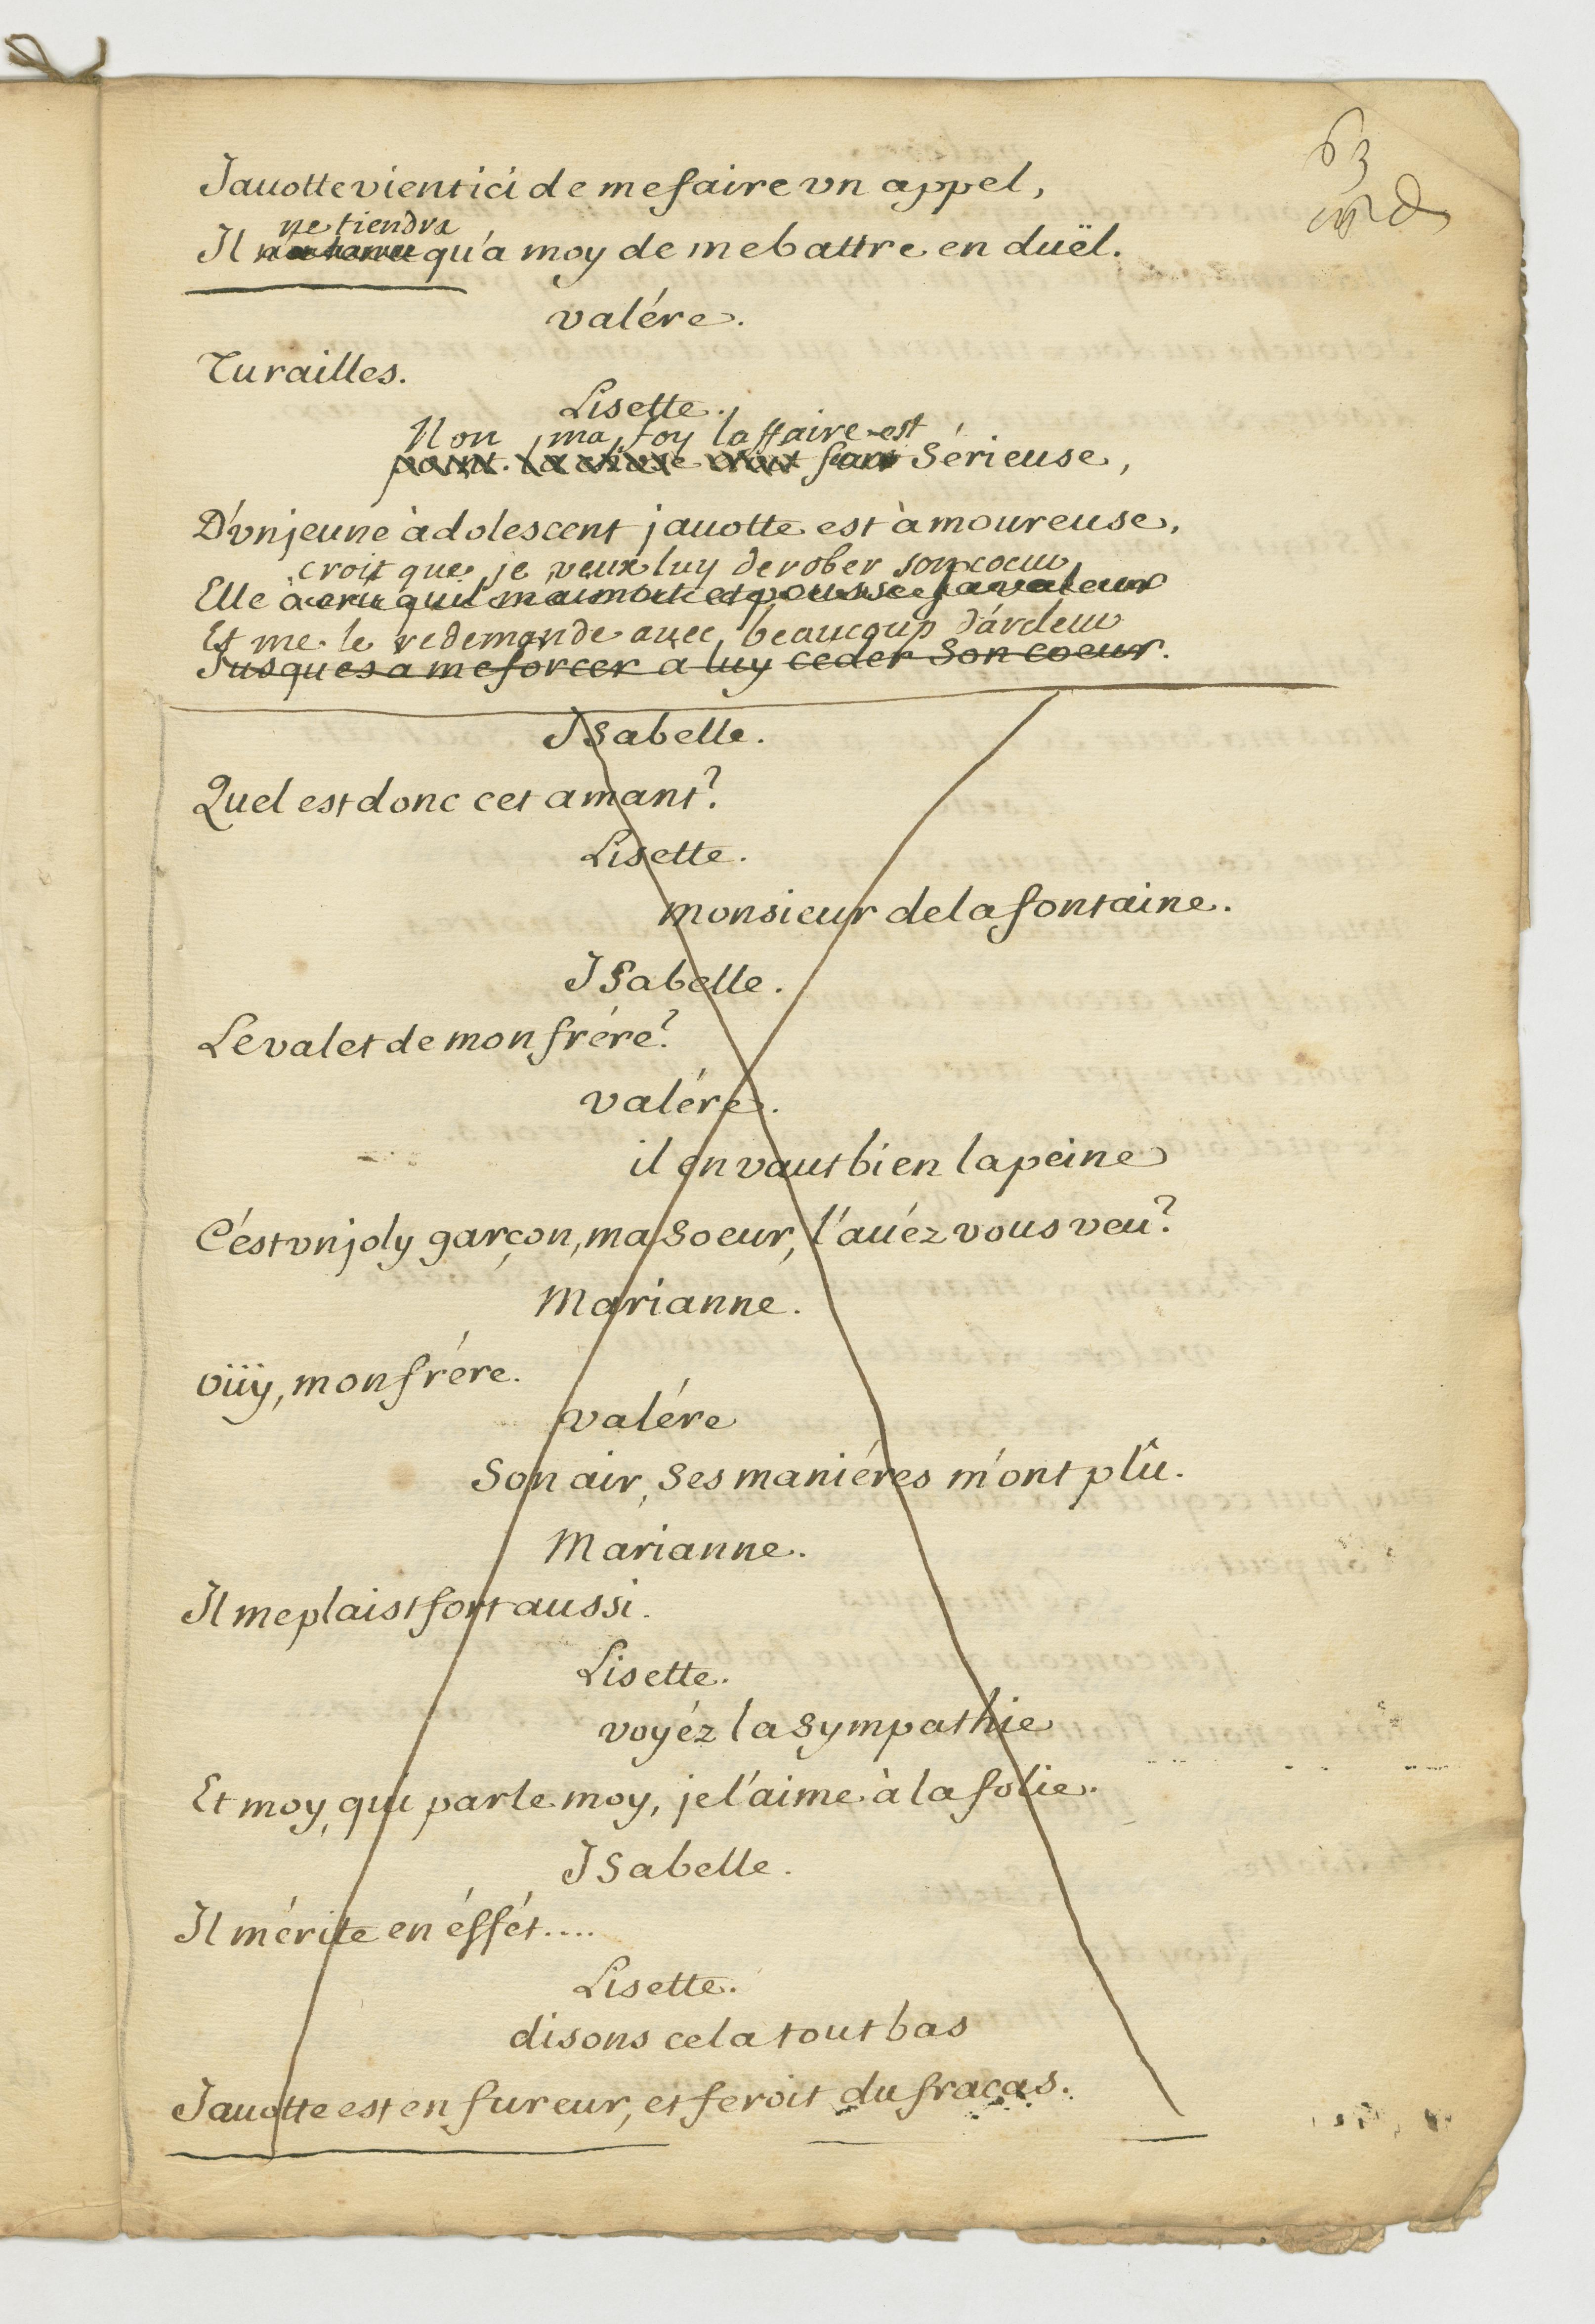 63
Jauotte vient ici de me faire vn appel,
ne tiendra
Il qu'a moy de me battre en duël.
valére.
Tu railles.
Lisette.
Non, ma foy l'affaire est
point. la chose est fort Sérieuse,
D'vn jeune àdolescent jauotte est àmoureuse,
croit que je veux luy derober son coeur
Elle a cru qu'il m'aimoit et pousse sa valeur
Et me le redemande auec beaucoup d'árdeur
Jusques a me forcer a luy ceder Son coeur.
JSabelle.
Quel est donc cet amant?
Lisette.
monsieur de la fontaine.
JSabelle.
Le valet de mon frére?
valére.
il en vaut bien la peine
C'est vn joly garçon, ma Soeur, l'auéz vous veu?
Marianne.
oüy, mon frére.
valére
Son air, Ses maniéres m'ont plû.
Marianne.
Il me plaist fort aussi.
Lisette.
voyéz la Sympathie
Et moy, qui parle moy, je l'aime à la folie.
JSabelle.
Il mérite en éffét....
Lisette.
disons cela tout bas
Jauotte est en fureur, et feroit du fracas.